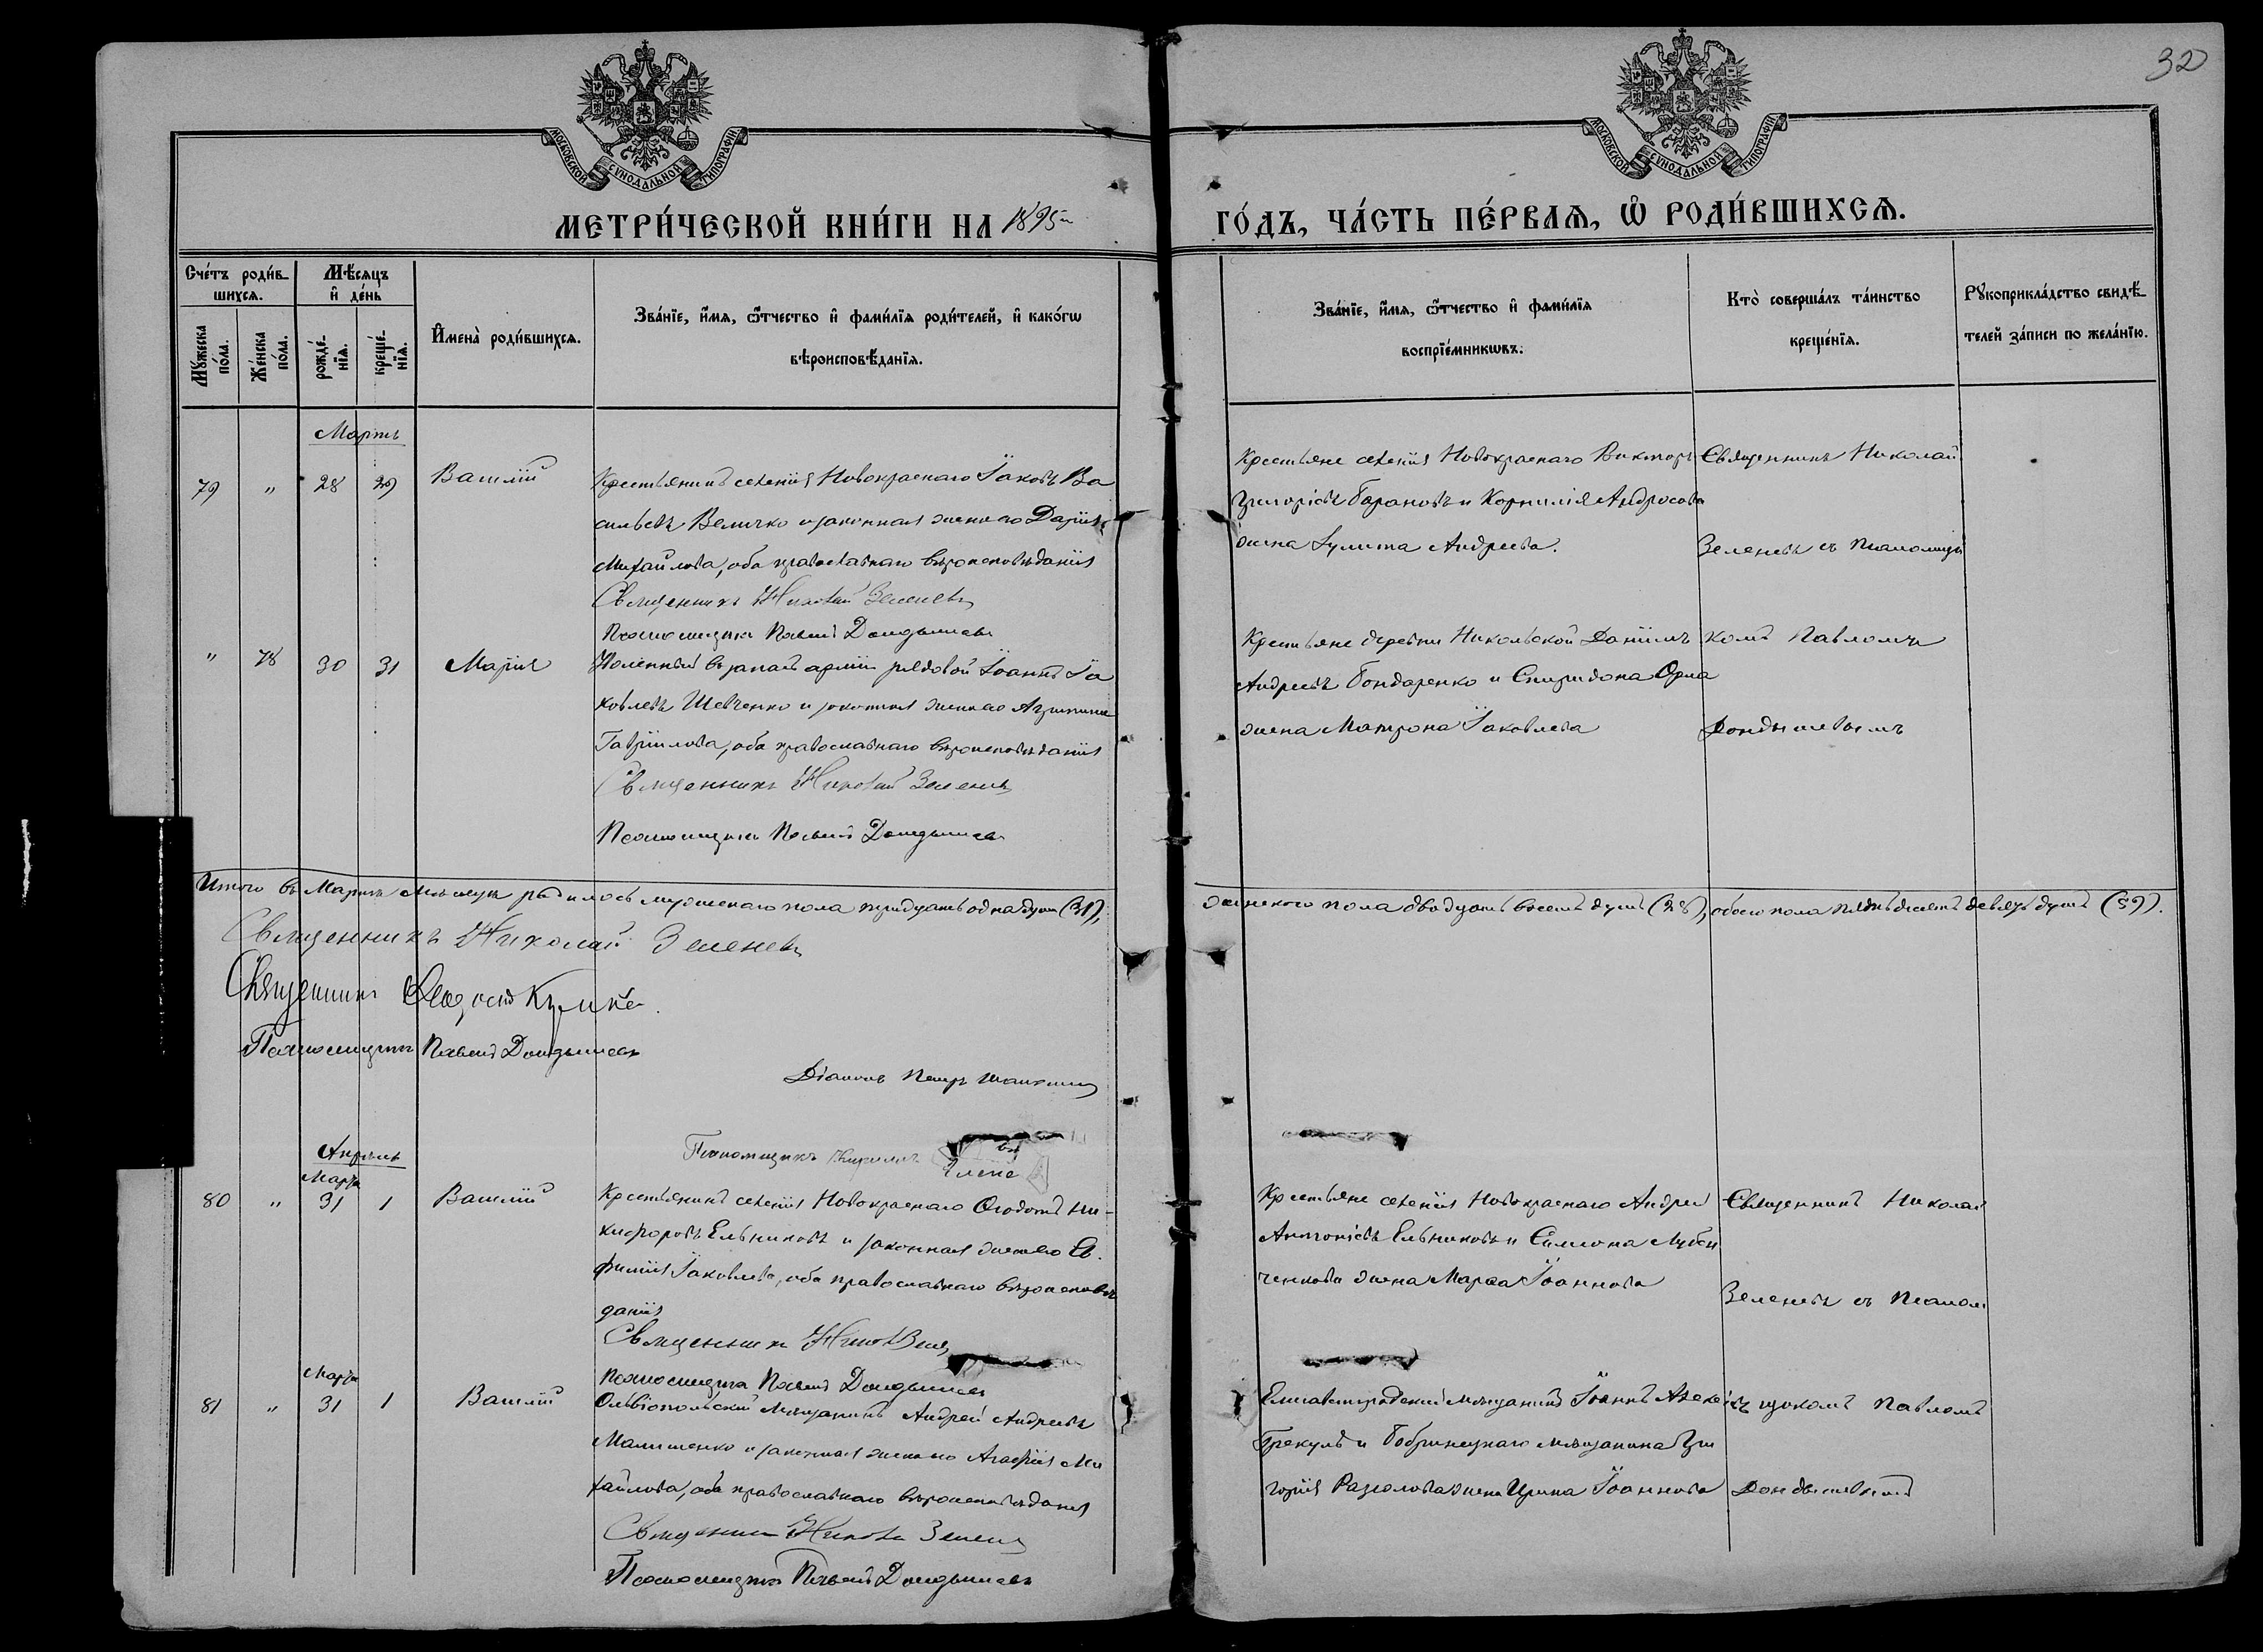 32
МОСКОВСКОЙ СУНОДАЛЬНОЙ ТИПОГРАФІИ
МОСКОВСКОЙ СУНОДАЛЬНОЙ ТИПОГРАФІИ
МЕТРИ́ЧЕСКОЙ КНИ́ГИ НА 1895й
ГО́ДЪ, ЧА́СТЬ ПЕ́РВАѦ, Ѽ РОДИ́ВШИХСѦ.
Сче́тъ роди́в-
шихсѧ.
Мꙋ́жеска
по́ла.
Же́нска
по́ла.
Мѣ́сѧцъ
и҆ де́нь
рожде́-
нїѧ.
креще́-
нїѧ.
И҆мена̀ роди́вшихсѧ.
Зва́нїе, и҆́мѧ, ѻ҆́тчество и҆ фами́лїѧ роди́телей, и҆ како́гѡ
вѣроисповѣ́данїѧ.
Зва́нїе, и҆́мѧ, ѻ҆́тчество и҆ фами́лїѧ
воспрїе́мникѡвъ.
Кто̀ соверша́лъ та́инство
креще́нїѧ.
Рꙋкоприкла́дство свидѣ́-
телей за́писи по жела́нїю.
Мартъ
79 " 28 29 Василій
Крестьянинъ селенія Новокраснаго Іаковъ Ва
сильевъ Величко и законная жена его Дарія
Михайлова, оба православнаго вѣроисповѣданія
Священникъ Николай Зеленев
Псаломщикъ Павелъ Дондышев
Крестьяне селенія Новокраснаго Викторъ
Григоріевъ Барановъ и Корнилія Андросова
жена Іулита Андреева.
Священникъ Николай
Зеленевъ съ Псаломщи
" 28 30 31 Марія
Уволенный въ запасъ арміи рядовой Іоаннъ Іа
ковлевъ Шевченко и законная жена его Агрипина
Гавріилова, оба православнаго вѣроисповѣданія
Священникъ Николай Зеленев
Псаломщикъ Павелъ Дондышев
Крестьяне деревни Никольской Даніилъ
Андреевъ Бондаренко и Спиридона Орла
жена Матрона Іаковлева
комъ Павломъ
Дондышевымъ
Итого въ Мартѣ мѣсяцѣ родилось мужескаго пола тридцать одна душа (31),
женскаго пола двадцать восемь душъ (28), обоего пола пятьдесятъ девять душъ (59).
Священникъ Николай Зеленев
Священникъ
Псаломщикъ Павелъ Дондышев
Діаконъ Петръ
Апрѣль
Псаломщикъ
80 " Марта 31 1 Василій
Крестьянинъ селенія Новокраснаго Ѳеодотъ Ни-
кифоровъ Ельниковъ и законная жена его Ев
фимія Іаковлева, оба православнаго вѣроисповѣ
данія
Священникъ
Псаломщикъ Павелъ Дондышев
Крестьяне селенія Новокраснаго Андрей
Антоніевъ Ельниковъ и Симеона
ченкова жена Марѳа Іоаннова
Священникъ Николай
Зеленевъ съ Псалом
81 " Марта 31 1 Василій
Ольвіопольскій мѣщанинъ Андрей Андреевъ
Малишенко и законная жена его Агафія Ми
хайлова, оба православнаго вѣроисповѣданія
Священникъ Зелен
Псаломщикъ Павелъ Дондышев
Елисаветградскій мѣщанинъ Іоаннъ Алексіевъ
Грекулъ и Бобринецкаго мѣщанина Гри
горія жена Ирина Іоаннова
щикомъ Павломъ
Дондышевымъ